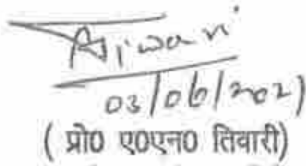 Tiwari
03/06/2021
( प्रो0 ए0एन0 तिवारी)